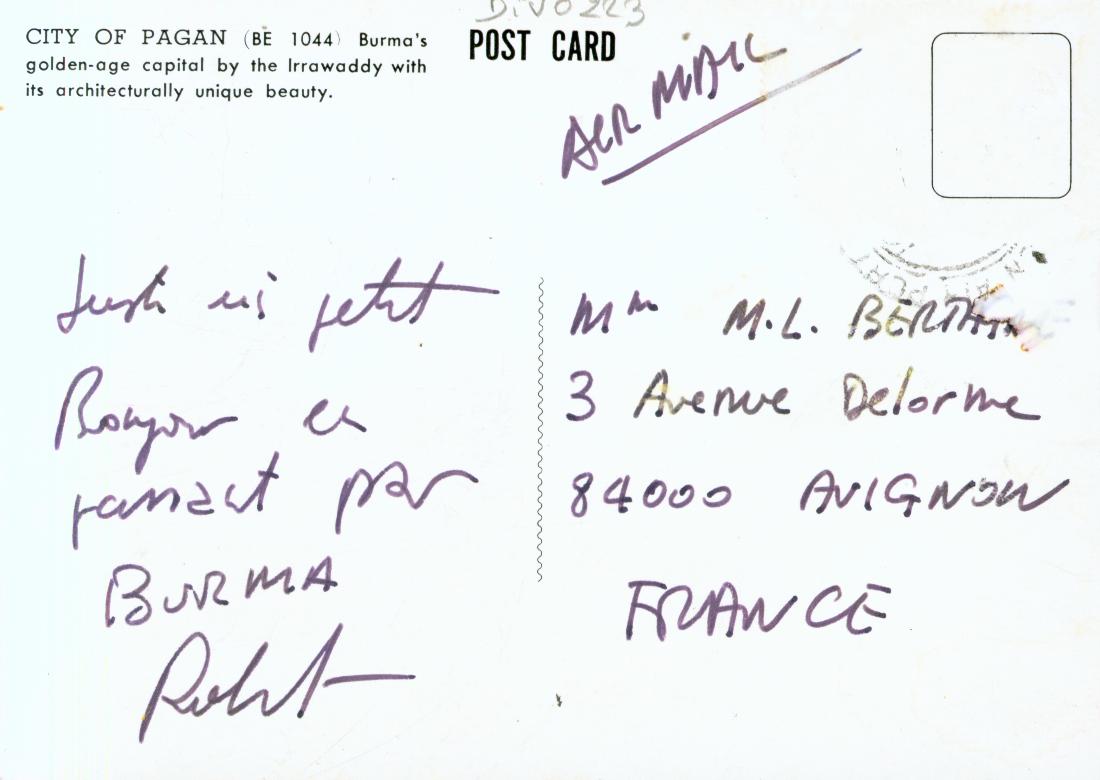 DIV0223
CITY OF PAGAN (BE 1044) Burma's
golden-age capital by the Irrawaddy with
its architecturally unique beauty.
POST CARD
AIR MAIL
Juste un petit
Bonjour en
passant par
BURMA
Robert
Mm M.L. BERTH
3 Avenue Delorme
84000 AVIGNON
FRANCE